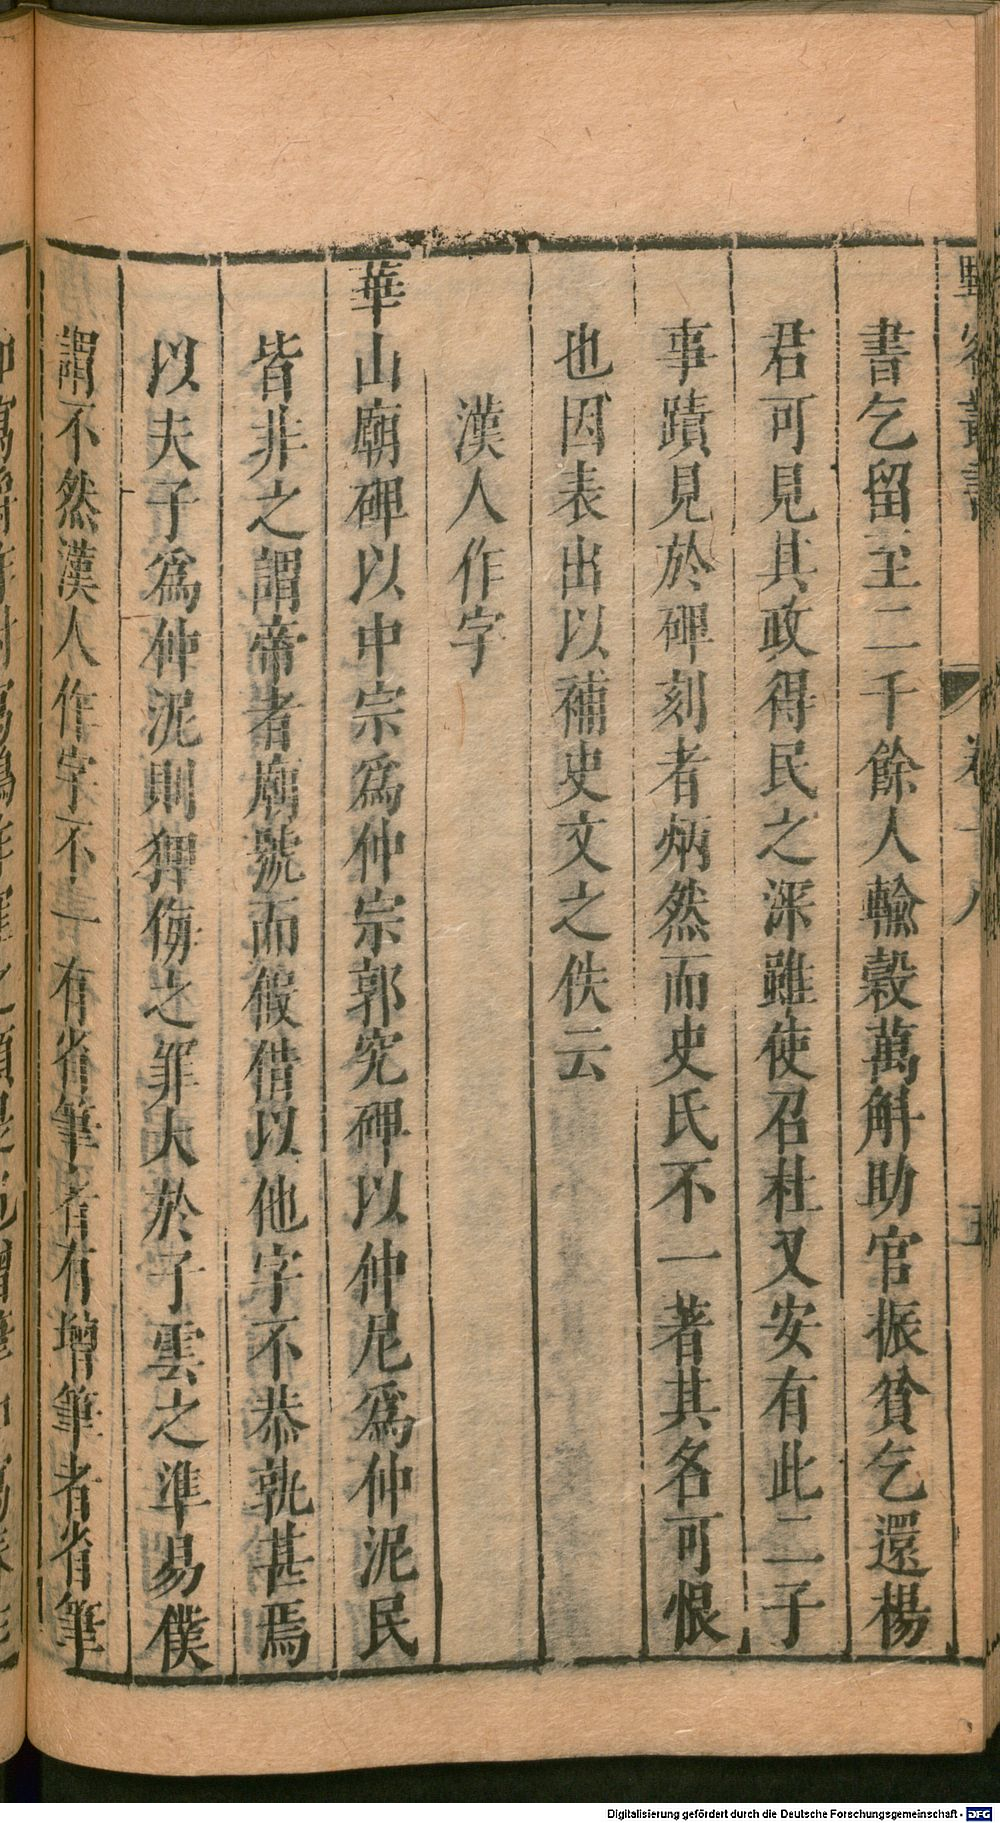 野客叢書
卷十八
五
書乞留至二千餘人輸穀萬斛助官振貧乞還楊
君可見其政得民之深雖使召杜又安有此二子
事蹟見於碑刻者炳然而史氏不一著其名可恨
也因表出以補史文之佚云
漢人作字
華山廟碑以中宗爲仲宗郭究碑以仲尼爲仲泥民
皆非之謂帝者廟號而假借以他字不恭孰甚焉
以夫子爲仲泥則狎侮之罪大於子雲之準易僕
謂不然漢人作字不一有省筆者有增筆者省筆
Digitalisierung gefördert durch die Deutsche Forschungsgemeinschaft - DFG